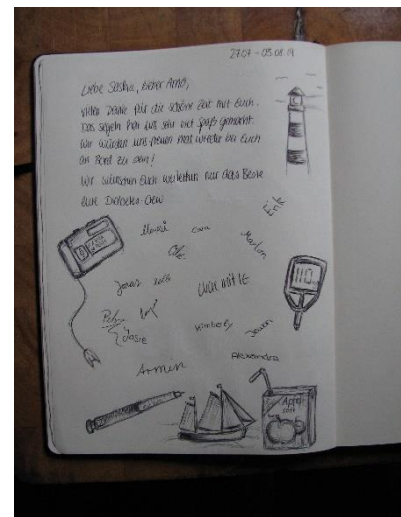 27.07 - 03.08.19
Liebe Sasha, lieber Arno,
vielen Danke für die schöne Zeit mit Euch.
Das segeln hat uns sehr viel Spaß gemacht.
Wir würden uns freuen mal wieder bei Euch
an Bord zu sein!
Wir wünschen Euch weiterhin nur das Beste
Eure Diabetes-Crew
Erik
Marlon
Jonas
Lucas
Josie
Kimberly
Armin
Alexandra
110
Apfel
saft